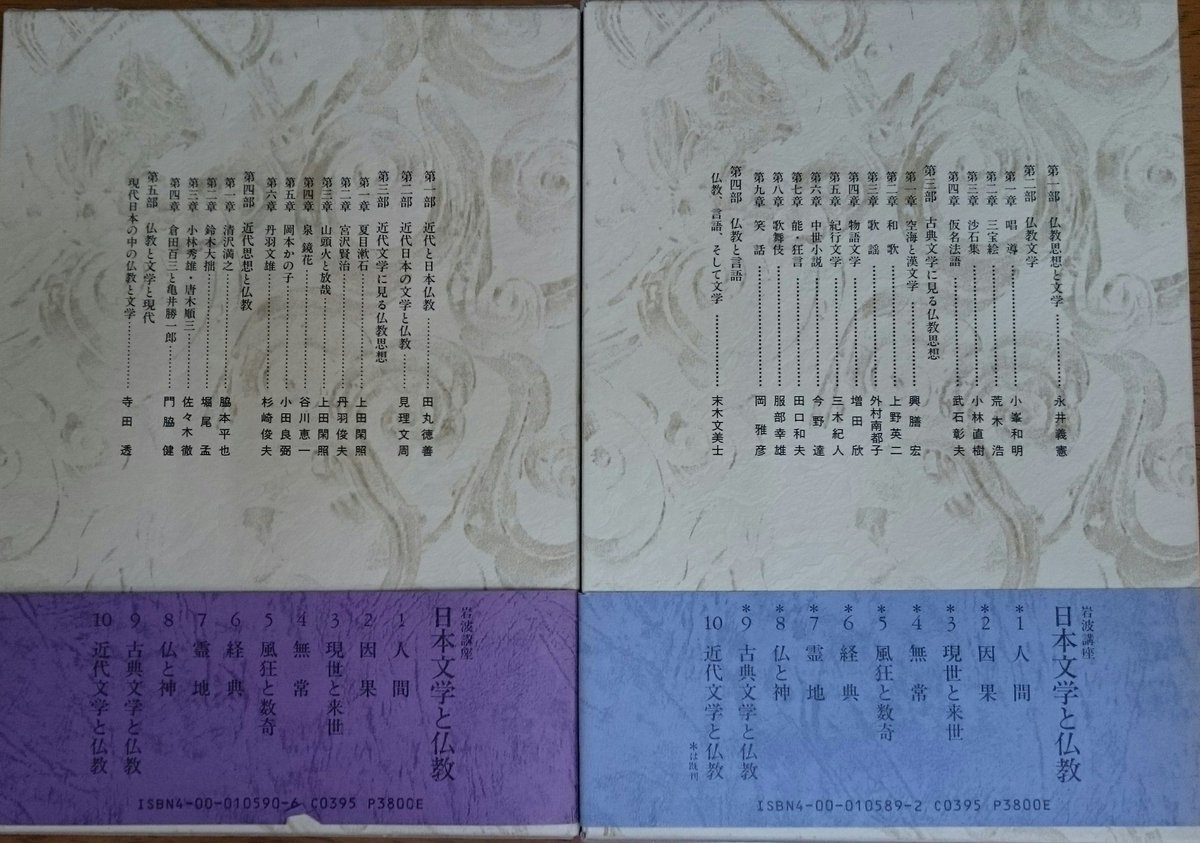 第一部 近代と日本仏教……田丸徳善
第二部 近代日本の文学と仏教……見理文周
第三部 近代文学に見る仏教思想
第一章 夏目漱石……上田閑照
第二章 宮沢賢治……丹羽俊夫
第三章 山頭火と放哉……上田閑照
第四章 泉鏡花……谷川恵一
第五章 岡本かの子……小田良弼
第六章 丹羽文雄……杉崎俊夫
第四部 近代思想と仏教
第一章 清沢満之……脇本平也
第二章 鈴木大拙……堀尾孟
第三章 小林秀雄・唐木順三……佐々木徹
第四章 倉田百三と亀井勝一郎……門脇健
第五部 仏教と文学と現代
現代日本の中の仏教と文学……寺田透
岩波講座
日本文学と仏教
1 人間
2 因果
3 現世と来世
4 無常
5 風狂と数奇
6 経典
7 霊地
8 仏と神
9 古典文学と仏教
10 近代文学と仏教
ISBN4-00-010590-6 C0395 P3800E
第一部 仏教思想と文学……永井義憲
第二部 仏教文学
第一章 唱導……小峯和明
第二章 三宝絵……荒木浩
第三章 沙石集……小林直樹
第四章 仮名法語……武石彰夫
第三部 古典文学に見る仏教思想
第一章 空海と漢文学……興膳宏
第二章 和歌……上野英二
第三章 歌謡……外村南都子
第四章 物語文学……増田欣
第五章 紀行文学……三木紀人
第六章 中世小説……今野達
第七章 能・狂言……田口和夫
第八章 歌舞伎……服部幸雄
第九章 笑話……岡雅彦
第四部 仏教と言語
仏教、言語、そして文学……末木文美士
岩波講座
日本文学と仏教
*1 人間
*2 因果
*3 現世と来世
*4 無常
*5 風狂と数奇
*6 経典
*7 霊地
*8 仏と神
*9 古典文学と仏教
10 近代文学と仏教
*は既刊
ISBN4-00-010589-2 C0395 P3800E